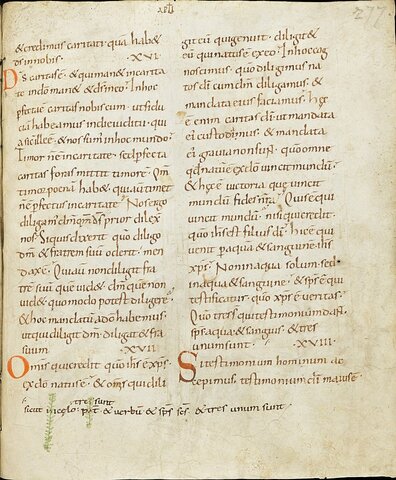 xpli
277
& credimus caritati quā hab&
ds innobis. XVI.
Ds caritas ē. & qui man& incarita
te indo man& & ds ineo. Inhoc
pfecta ē caritas nobiscum. ut fidu
ciā habeamus indie iudicii. qui
a sic ille ē. & nos sum' inhoc mundo.
Timor nē incaritate. sed pfecta
caritas foras mittit timorē. Qm̄
timor poenā hab&. qui aut tim&
nē pfectus incaritate. Nos ergo
diligam' dm̄ qm̄ ds prior dilex
nos. Siquis dixerit quō diligo
dm̄ & fratrem suū oderit. men
dax ē. Qui aū non diligit fra
trē suū quē vid&. dm̄ quē non
vid& quomodo potest diligere.
& hoc mandatū adō habemus.
ut qui diligit dm̄. diligat & fra
suum. XVII.
Omis qui credit quō ihs ē xps.
exdō natus ē. & omis qui dili
git eū qui genuit. diligit &
eū qui natus ē exeo. Inhoc cog
noscimus quō diligimus na
tos dī cum dm̄ diligamus. &
mandata ei' faciamus. Hęc
ē enim caritas dī ut mandata
ei' custodim'. & mandata
ei' gravia non sunt. quō omne
qd natū ē exdō vincit mundū.
& hęc ē victoria que vincit
mundū fides nrā. Quis ē qui
vincit mundū. nisi qui credit.
quō ihs est filius dī. hic ē qui
venit p aquā & sanguinē. ihs
xps. Non in aqua solum. sed
in aqua & sanguine. & sps ē qui
testificat'. quō xps ē veritas.
Quō tres qui testimoniū dant.
sps aqua & sanguis. & tres
unum sunt. XVIII.
Si testimonium hominum ac
cepimus. testimonium dī maius ē.
tres sunt
sicut in cęlo. pat & verbū & sps scs. & tres unum sunt.